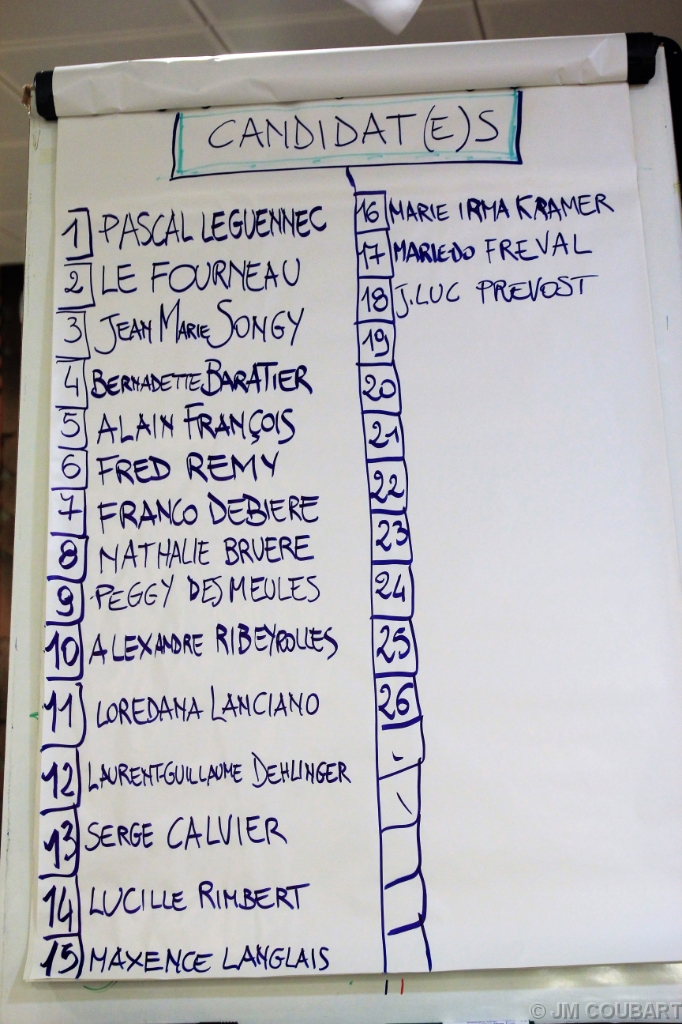 CANDIDAT(E)S
1 PASCAL LEGUENNEC
2 LE FOURNEAU
3 JEAN MARIE SONGY
4 BERNADETTE BARATIER
5 ALAIN FRANÇOIS
6 FRED REMY
7 FRANCO DEBIERE
8 NATHALIE BRUERE
9 PEGGY DESMEULES
10 ALEXANDRE RIBEYROLLES
11 LOREDANA LANCIANO
12 LAURENT-GUILLAUME DEHLINGER
13 SERGE CALVIER
14 LUCILLE RIMBERT
15 MAXENCE LANGLAIS
16 MARIE IRMA KRAMER
17 MARIEDO FREVAL
18 J.LUC PREVOST
19
20
21
22
23
24
25
26
© JM COUBART